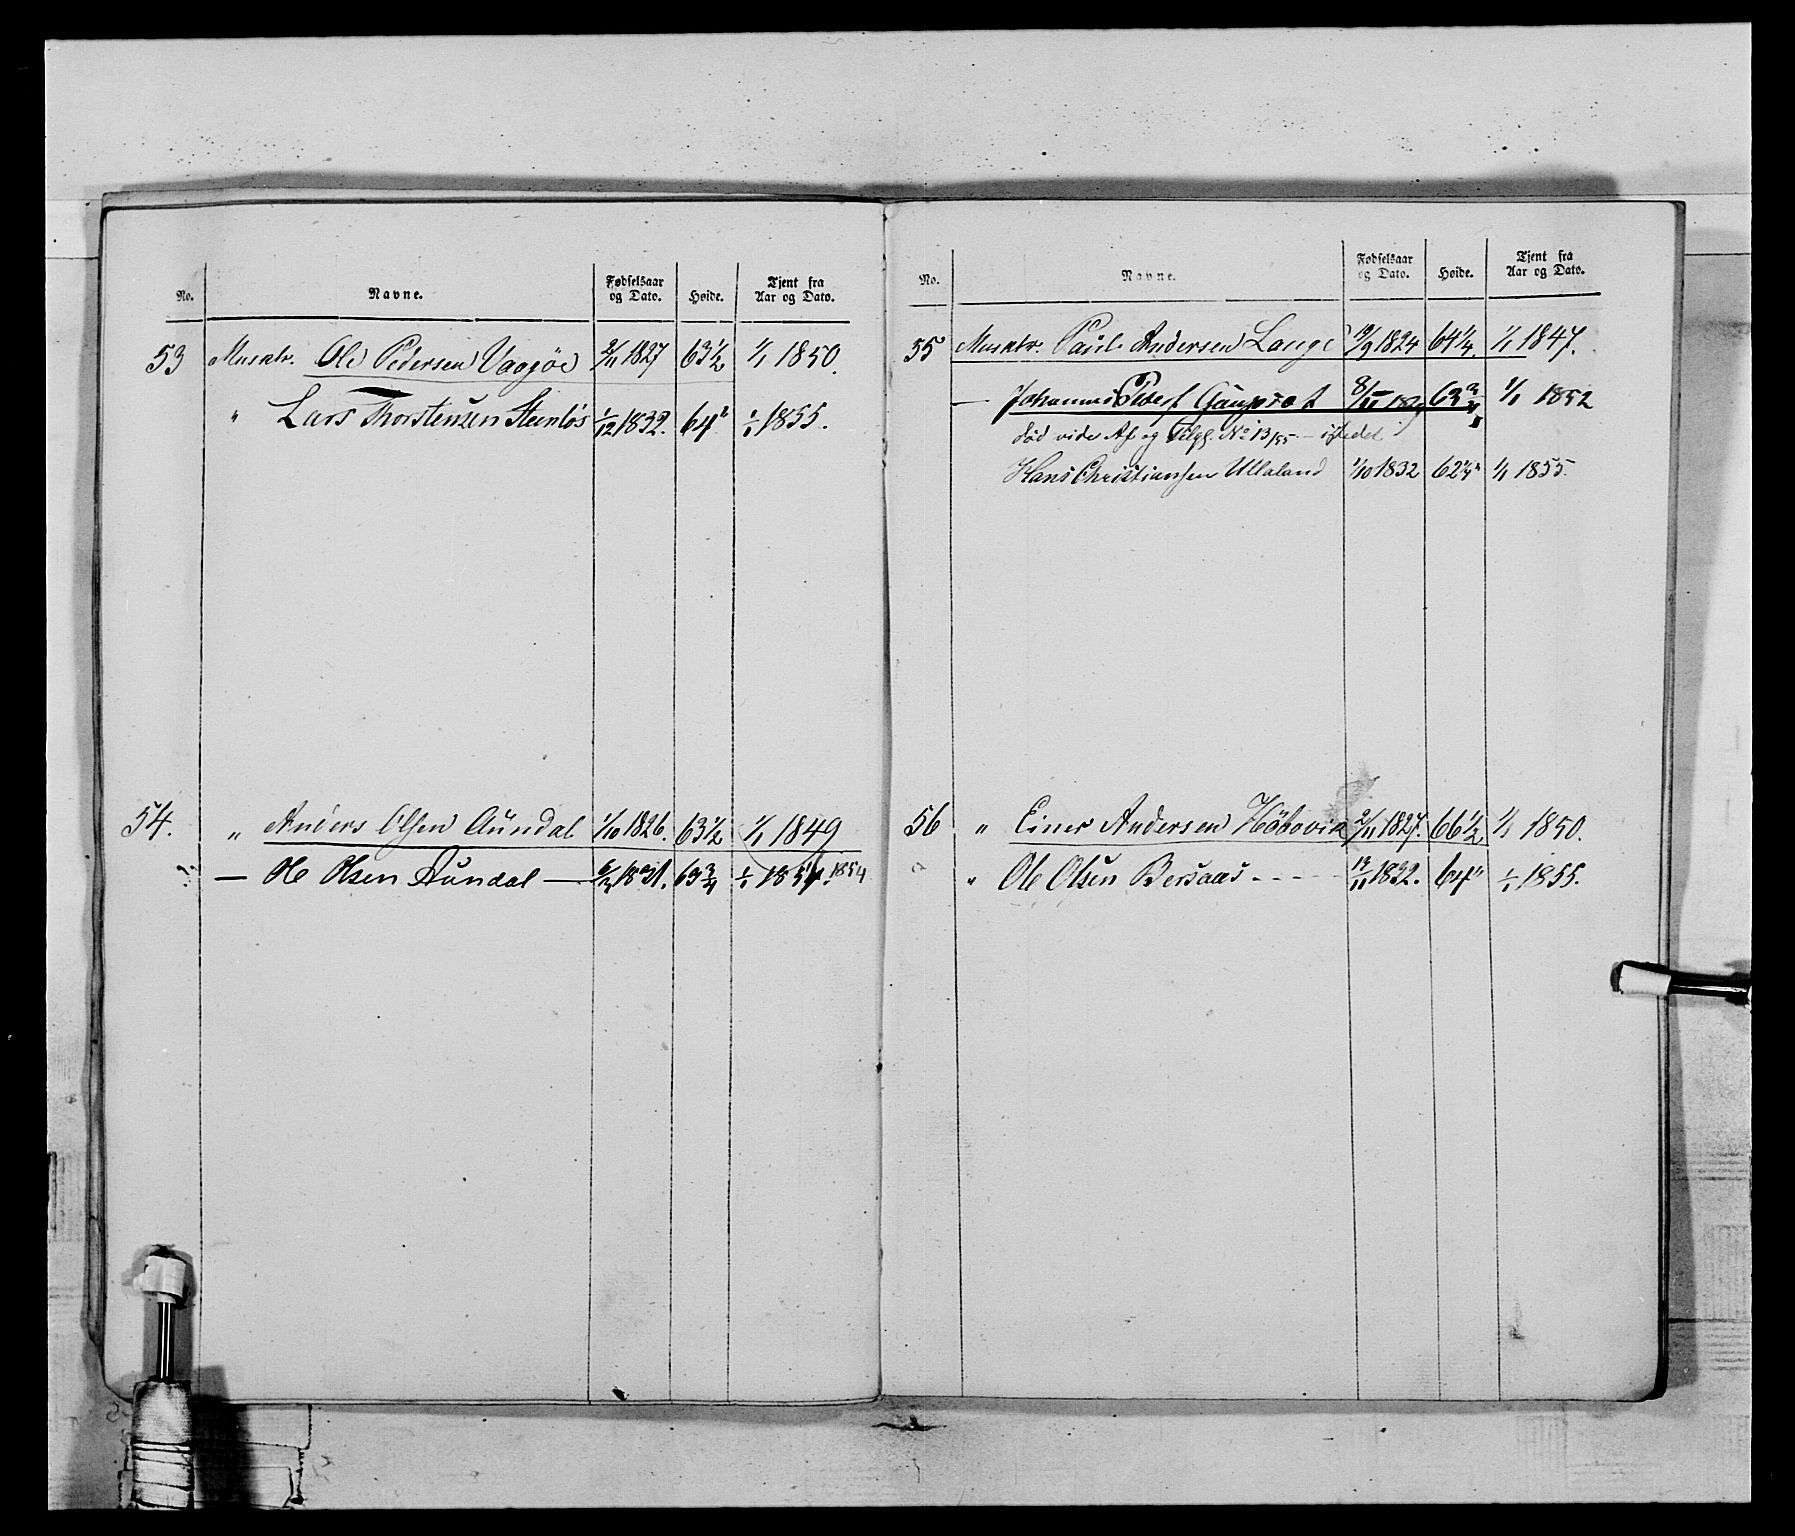 No. Navne. Fødselsaar og Dato. Høide. Tjent fra Aar og Dato.
53 Musktr. Ole Pedersen Vaagöe 2/11 1827 63 1/2 1/1 1850.
" Lars Thorstensen Steenlös 1/12 1832. 64" 1/1 1855.
54. " Anders Olsen Aundal 1/10 1826. 63 1/2 1/1 1849
— Ole Olsen Aundal — 1831. 63 3/4 1/1 1854. 1854
No. Navne. Fødselsaar og Dato. Høide. Tjent fra Aar og Dato.
55 Musktr. Paul Andersen Lange 19/9 1824 64 1/4. 1/1 1847.
— Johannes 8/11 63 3/4 1/1 1852
død vide Af og Tilgl. No 13/55. — istedet
Hans Christiansen Ullaland 1/10 1832 62 1/4" 1/1 1855.
56 " Einer Andersen Höbovik 2/11 1827. 66 1/2 1/1 1850.
" Ole Olsen Bersaas - - - - 13/11 1832. 64" 1/1 1855.